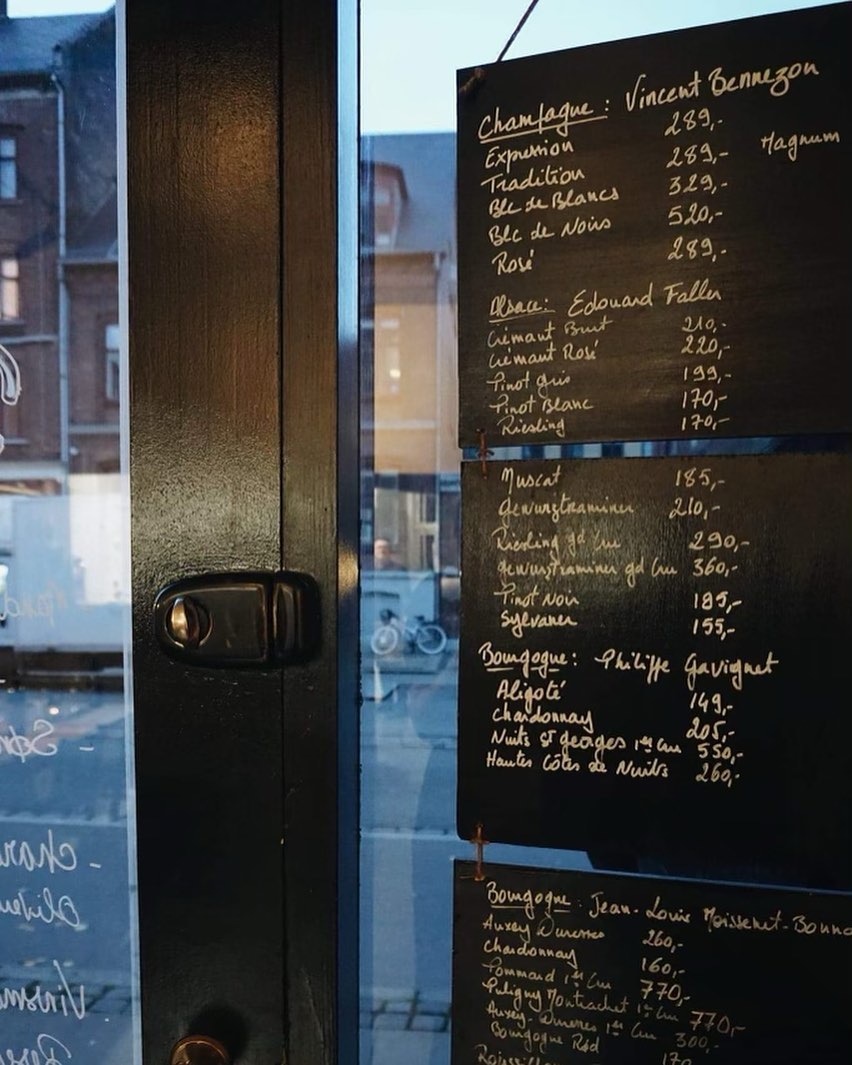 Champagne: Vincent Bennezon
Expression 289,-
Tradition 289,- Magnum
Blc de Blancs 329,-
Blc de Noirs 520,-
Rosé 289,-
Alsace: Edouard Faller
Crémant Brut 210,-
Crémant Rosé 220,-
Pinot gris 199,-
Pinot Blanc 170,-
Riesling 170,-
Muscat 185,-
Gewurztraminer 210,-
Riesling gd Cru 290,-
Gewurztraminer gd Cru 360,-
Pinot Noir 185,-
Sylvaner 155,-
Bourgogne: Philippe Gavignet
Aligoté 149,-
Chardonnay 205,-
Nuits St Georges 1er Cru 550,-
Hautes Côtes de Nuits 260,-
Bourgogne: Jean-Louis Moissenet-Bonna
Auxey Duresses 260,-
Chardonnay 160,-
Pommard 1er Cru 770,-
Puligny Montrachet 1er Cru 770,-
Auxey-Duresses 1er Cru 300,-
Bourgogne Rød 170